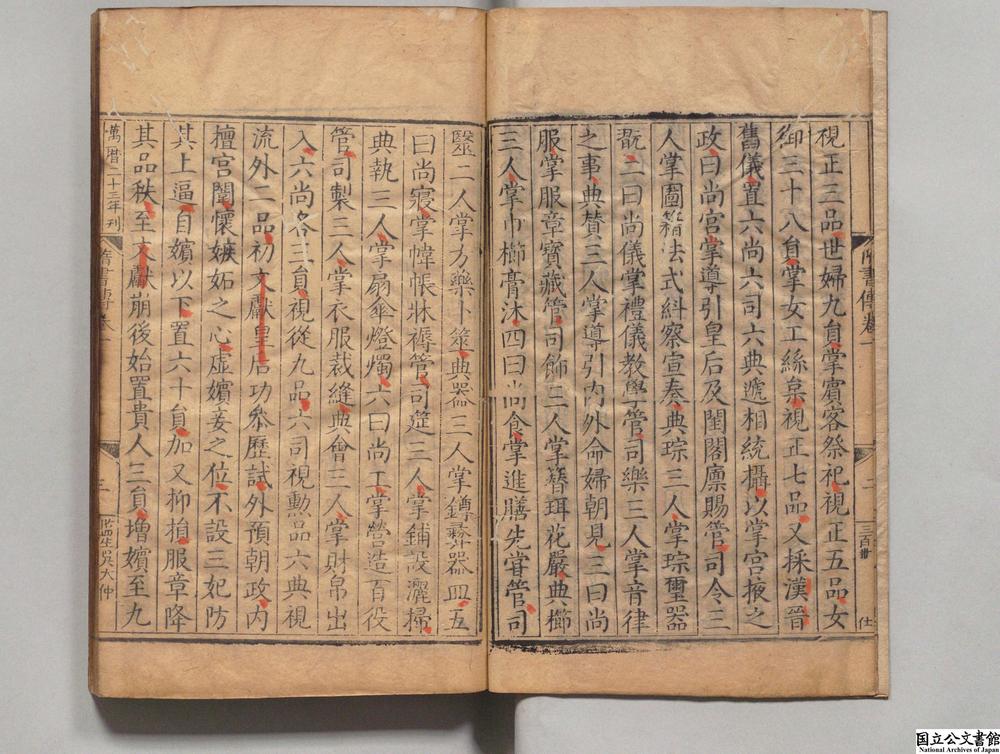 視正三品世婦九員掌賓客祭祀視正五品女
御三十八員掌女工絲枲視正七品又採漢晉
舊儀置六尚六司六典遞相統攝以掌宮掖之
政曰尚宮掌導引皇后及閨閤廩賜管司令三
人掌圖籍法式糾察宣奏典琮三人掌琮璽器
翫二曰尚儀掌禮儀教學管司樂三人掌音律
之事典贊三人掌導引內外命婦朝見三曰尚
服掌服章寶藏管司飾三人掌簪珥花嚴典櫛
三人掌巾櫛膏沐四曰尚食掌進膳先甞管司
隋書傳卷一
二
三百卅
仕
醫二人掌方藥卜筮典器三人掌鐏彝器皿五
曰尚寢掌幃帳牀褥管司筵三人掌鋪設灑掃
典執三人掌扇傘燈燭六曰尚工掌營造百役
管司製三人掌衣服裁縫典會三人掌財帛出
入六尚各三員視從九品六司視勲品六典視
流外二品初文獻皇后功叅歷試外預朝政內
擅宮闈懷嫉妬之心虛嬪妾之位不設三妃防
其上逼自嬪以下置六十員加又抑損服章降
其品秩至文獻崩後始置貴人三員增嬪至九
萬曆二十二年刊
隋書傳卷一
三
監生吳大仲
国立公文書館
National Archives of Japan